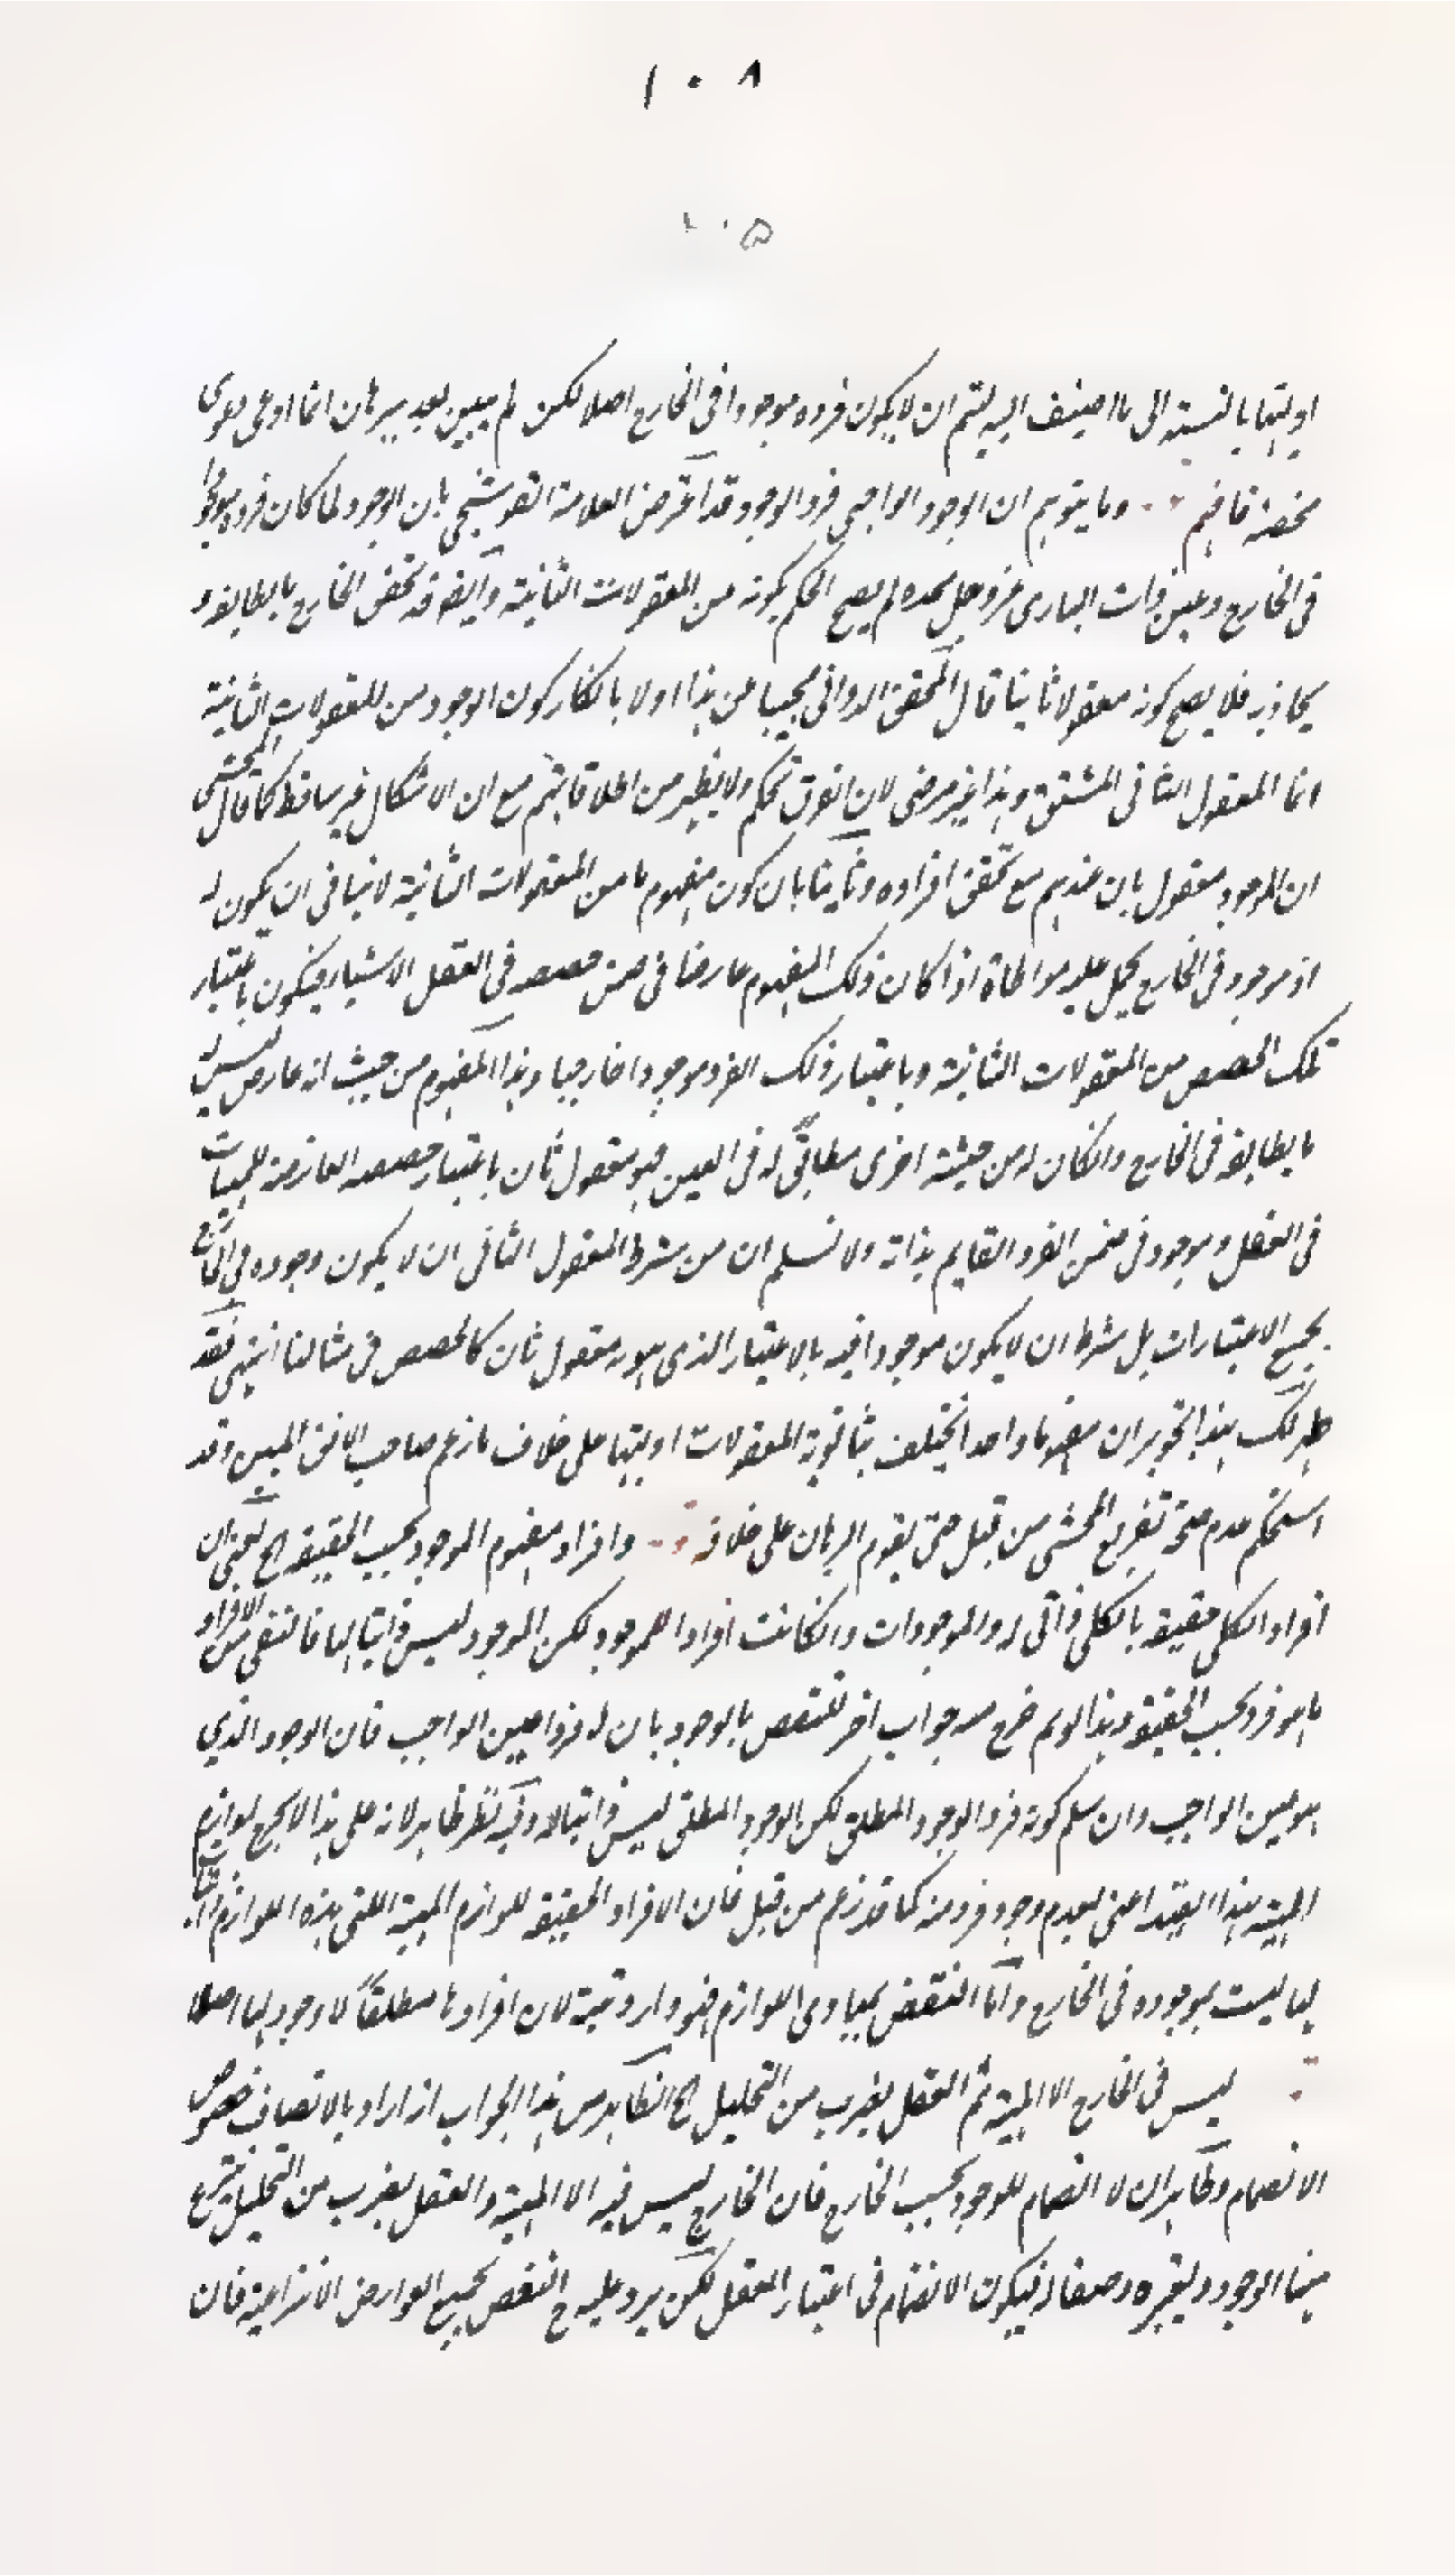 ١٠٨
١٠٥
اوليتها بالنسبة الى ما اضيف اليه لتم ان لا يكون فرده موجودا فى الخارج اصلا لكن لم يبين بعد ببرهان انما ادعى دعوى
محضة فافهم وما يتوهم ان الوجود الواجبى فرد الوجود قد اعترض العلامة القوشجى بان الوجود لما كان فرده موجودا
فى الخارج وعين ذات البارى عز وجل مجده لم يصح الحكم بكونه من المعقولات الثانية وايضا قد تحقق فى الخارج ما يطابقه و
يحاذيه فلا يصح كونه معقولا ثانيا قال المحقق الدوانى مجيبا عن هذا اولا بانكار كون الوجود من المعقولات الثانية
انما المعقول الثانى المشتق وهذا غير مرضى لان الفرق تحكم ولا يظهر من اطلاقاتهم مع ان الاشكال غير ساقط كما قال المحشى
ان الموجود معقول ثان عندهم مع تحقق افراده وثانيا بان كون مفهوم ما من المعقولات الثانية لا ينافى ان يكون له
فرد موجود فى الخارج يحمل عليه مواطاة اذا كان ذلك المفهوم عارضا فى ضمن حصصه فى العقل الاشياء فيكون باعتبار
تلك الحصص من المعقولات الثانية وباعتبار ذلك الفرد موجودا خارجيا وهذا المفهوم من حيث انه عارض ليس له
ما يطابقه فى الخارج وان كان له من حيثية اخرى مطابق له فى العين فهو معقول ثان باعتبار حصصه العارضة للمهيات
فى العقل وموجود فى ضمن الفرد القايم بذاته ولا نسلم ان من شرط المعقول الثانى ان لا يكون وجوده فى الخارج
بجميع الاعتبارات بل شرط ان لا يكون موجودا فيه بالاعتبار الذى هو به معقول ثان كالحصص فى مثالنا انتهى فقد
ظهر لك بهذا التحرير ان مفهوما واحدا يختلف بثانوية المعقولات اوليتها على خلاف ما زعم صاحب الافق المبين وقد
استحكم عدم صحة تفريع المحشى من قبل حتى يقوم البرهان على خلافه وافراد مفهوم الموجود بحسب الحقيقة الخ يعنى ان
افراد الكلى حقيقة ما الكلى ذاتى له والموجودات وان كانت افرادا للموجود لكن الموجود ليس ذاتيا لها فانتفى من الافراد
ما هو فرد بحسب الحقيقة وهذا لو تم خرج منه جواب اخر للنقض بالوجود بان له فردا عين الواجب فان الوجود الذى
هو عين الواجب وان سلم كونه فردا لوجود المطلق لكن الوجود المطلق ليس ذاتيا له وفيه نظر ظاهر لانه على هذا لا يخرج لوازم
المهية بهذا القيد اعنى بعدم وجود فرد منه كما قد زعم من قبل فان الافراد الحقيقة للوازم المهية التى هذه اللوازم
لها ليست بموجودة فى الخارج واما النقض بمبادى اللوازم فهو وارد البتة لان افرادها مطلقا لا وجود لها اصلا
ليس فى الخارج الا المهية ثم العقل بضرب من التحليل الخ الظاهر من هذا الجواب انه اراد بالاتصاف خصوص
الانضمام وظاهر ان لا انضمام للوجود بحسب الخارج فان الخارج ليس فيه الا المهية والعقل بضرب من التحليل ينتزع
منها الوجود ويعتبره وصفا له فيكون الانضمام فى اعتبار العقل لكن يرد عليه ح النقض بجميع العوارض الانتزاعية فان